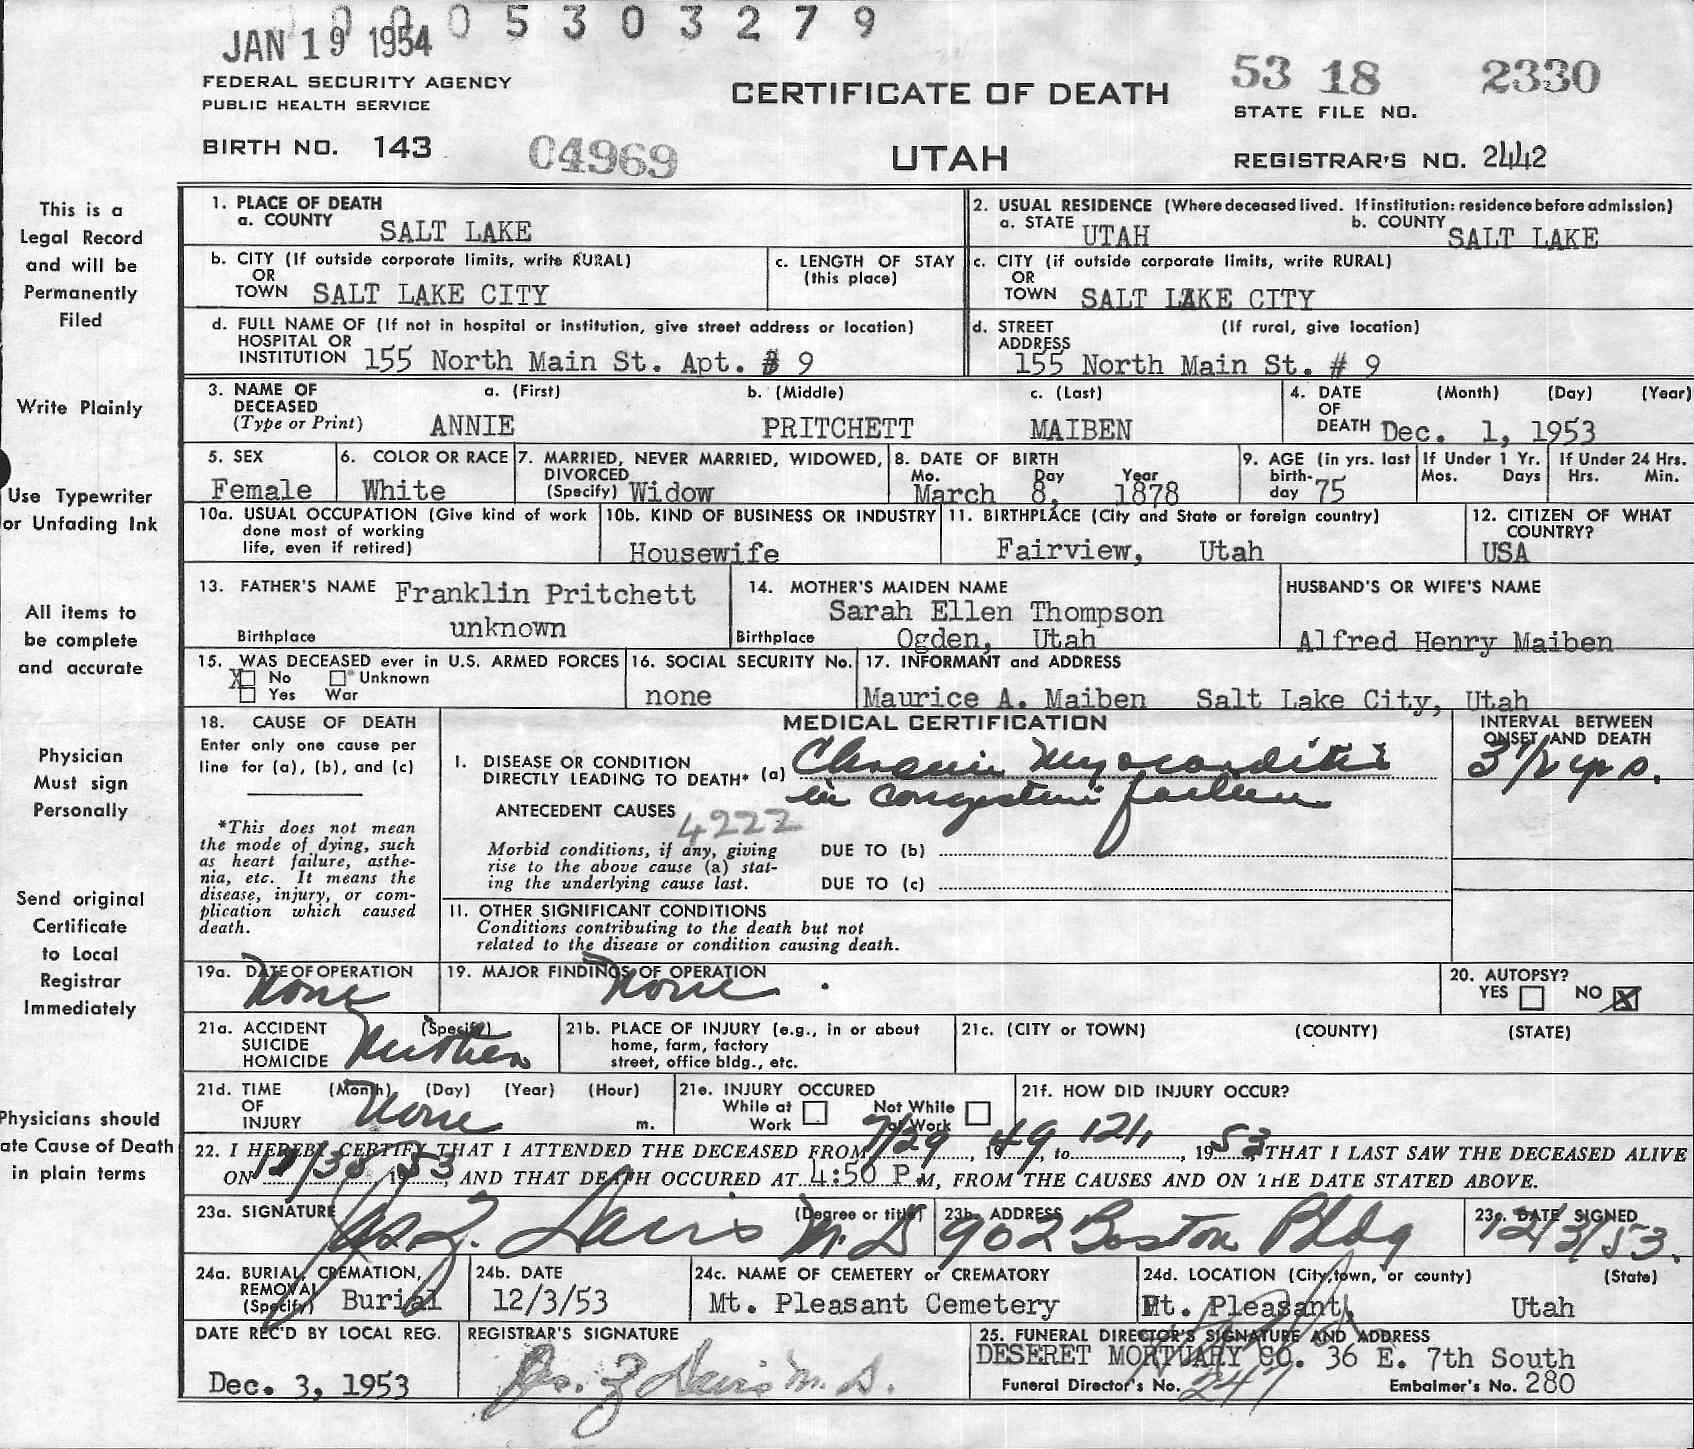 0005303279
JAN 19 1954
FEDERAL SECURITY AGENCY
PUBLIC HEALTH SERVICE
BIRTH NO. 143
04969
CERTIFICATE OF DEATH
UTAH
53 18 2330
STATE FILE NO.
REGISTRAR'S NO. 2442
This is a
Legal Record
and will be
Permanently
Filed
Write Plainly
Use Typewriter
or Unfading Ink
All items to
be complete
and accurate
Physician
Must sign
Personally
Send original
Certificate
to Local
Registrar
Immediately
Physicians should
ate Cause of Death
in plain terms
1. PLACE OF DEATH
a. COUNTY SALT LAKE
2. USUAL RESIDENCE (Where deceased lived. If institution: residence before admission)
a. STATE UTAH b. COUNTY SALT LAKE
b. CITY (If outside corporate limits, write RURAL)
OR
TOWN SALT LAKE CITY
c. LENGTH OF STAY
(this place)
c. CITY (if outside corporate limits, write RURAL)
OR
TOWN SALT LAKE CITY
d. FULL NAME OF (If not in hospital or institution, give street address or location)
HOSPITAL OR
INSTITUTION 155 North Main St. Apt. # 9
d. STREET (If rural, give location)
ADDRESS
155 North Main St. # 9
3. NAME OF a. (First) b. (Middle) c. (Last)
DECEASED
(Type or Print) ANNIE PRITCHETT MAIBEN
4. DATE (Month) (Day) (Year)
OF
DEATH Dec. 1, 1953
5. SEX
Female
6. COLOR OR RACE
White
7. MARRIED, NEVER MARRIED, WIDOWED,
DIVORCED
(Specify) Widow
8. DATE OF BIRTH
Mo. Day Year
March 8, 1878
9. AGE (in yrs. last
birth-
day 75
If Under 1 Yr.
Mos. Days
If Under 24 Hrs.
Hrs. Min.
10a. USUAL OCCUPATION (Give kind of work
done most of working
life, even if retired)
10b. KIND OF BUSINESS OR INDUSTRY
Housewife
11. BIRTHPLACE (City and State or foreign country)
Fairview, Utah
12. CITIZEN OF WHAT
COUNTRY?
USA
13. FATHER'S NAME Franklin Pritchett
Birthplace unknown
14. MOTHER'S MAIDEN NAME
Sarah Ellen Thompson
Birthplace Ogden, Utah
HUSBAND'S OR WIFE'S NAME
Alfred Henry Maiben
15. WAS DECEASED ever in U.S. ARMED FORCES
X No Unknown
Yes War
16. SOCIAL SECURITY No.
none
17. INFORMANT and ADDRESS
Maurice A. Maiben Salt Lake City, Utah
18. CAUSE OF DEATH
Enter only one cause per
line for (a), (b), and (c)
*This does not mean
the mode of dying, such
as heart failure, asthe-
nia, etc. It means the
disease, injury, or com-
plication which caused
death.
MEDICAL CERTIFICATION
INTERVAL BETWEEN
ONSET AND DEATH
3 1/2 yrs.
I. DISEASE OR CONDITION
DIRECTLY LEADING TO DEATH* (a) Chronic Myocarditis
in congestive failure
ANTECEDENT CAUSES
4222
Morbid conditions, if any, giving
rise to the above cause (a) stat-
ing the underlying cause last.
DUE TO (b)
DUE TO (c)
II. OTHER SIGNIFICANT CONDITIONS
Conditions contributing to the death but not
related to the disease or condition causing death.
19a. DATE OF OPERATION
None
19. MAJOR FINDINGS OF OPERATION
None
20. AUTOPSY?
YES NO X
21a. ACCIDENT (Specify)
SUICIDE
HOMICIDE Neither
21b. PLACE OF INJURY (e.g., in or about
home, farm, factory
street, office bldg., etc.
21c. (CITY or TOWN) (COUNTY) (STATE)
21d. TIME (Month) (Day) (Year) (Hour)
OF
INJURY None m.
21e. INJURY OCCURED
While at Work Not While at Work
21f. HOW DID INJURY OCCUR?
22. I HEREBY CERTIFY THAT I ATTENDED THE DECEASED FROM 7/29, 1949, to 12/1, 1953, THAT I LAST SAW THE DECEASED ALIVE
ON 11/30, 1953, AND THAT DEATH OCCURED AT 4:50 P.M, FROM THE CAUSES AND ON THE DATE STATED ABOVE.
23a. SIGNATURE (Degree or title)
Jas. Z. Davis M.D.
23b. ADDRESS
902 Boston Bldg
23c. DATE SIGNED
12/3/53.
24a. BURIAL, CREMATION,
REMOVAL
(Specify) Burial
24b. DATE
12/3/53
24c. NAME OF CEMETERY or CREMATORY
Mt. Pleasant Cemetery
24d. LOCATION (City, town, or county) (State)
Mt. Pleasant, Utah
DATE REC'D BY LOCAL REG.
Dec. 3, 1953
REGISTRAR'S SIGNATURE
Jas. Z Davis M.D.
25. FUNERAL DIRECTOR'S SIGNATURE AND ADDRESS
DESERET MORTUARY CO. 36 E. 7th South
Funeral Director's No. 247 Embalmer's No. 280